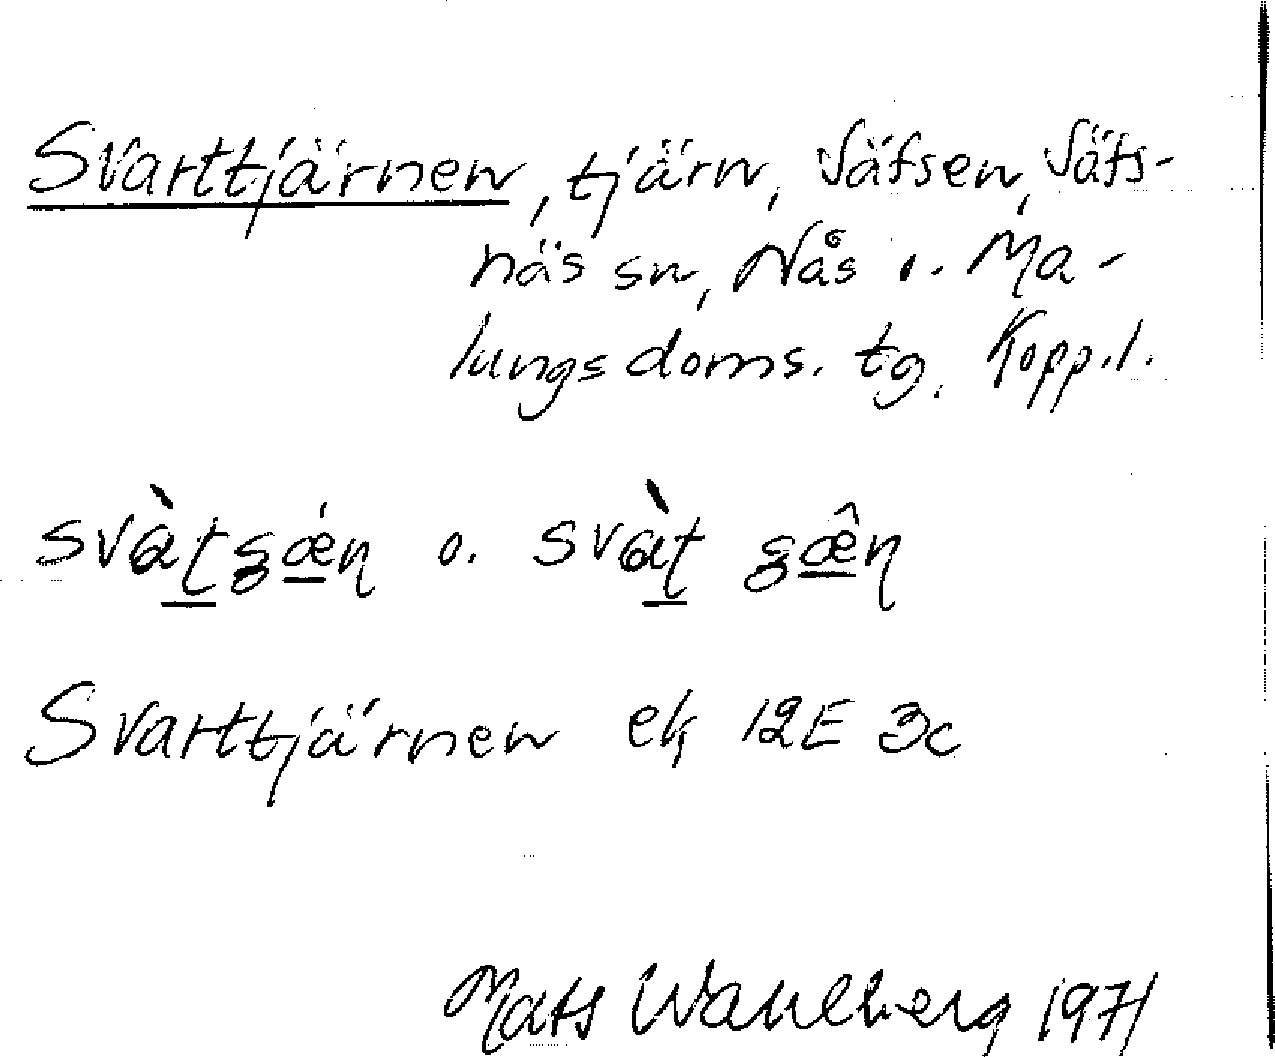 Svarttjärnen, tjärn, Säfsen, Säfs-
näs sn, Nås o. Ma-
lungs doms. tg. Kopp.l.
svàtʂǽn o. svàt ʂæ̂n
Svarttjärnen ek 12E 3c
Mats Wahlberg 1971